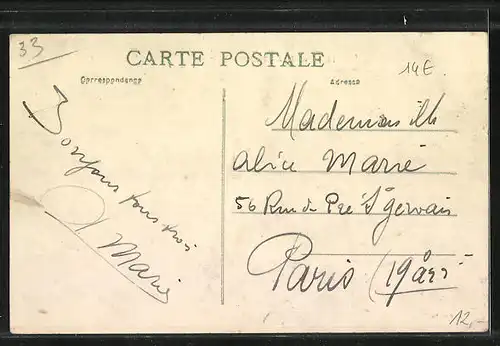 33
CARTE POSTALE
14E
Correspondance
Adresse
Bonjour tous trois
Marie
Mademoiselle
Alice Marie
56 Rue du Pré St gervais
Paris (19 Arr
12,-